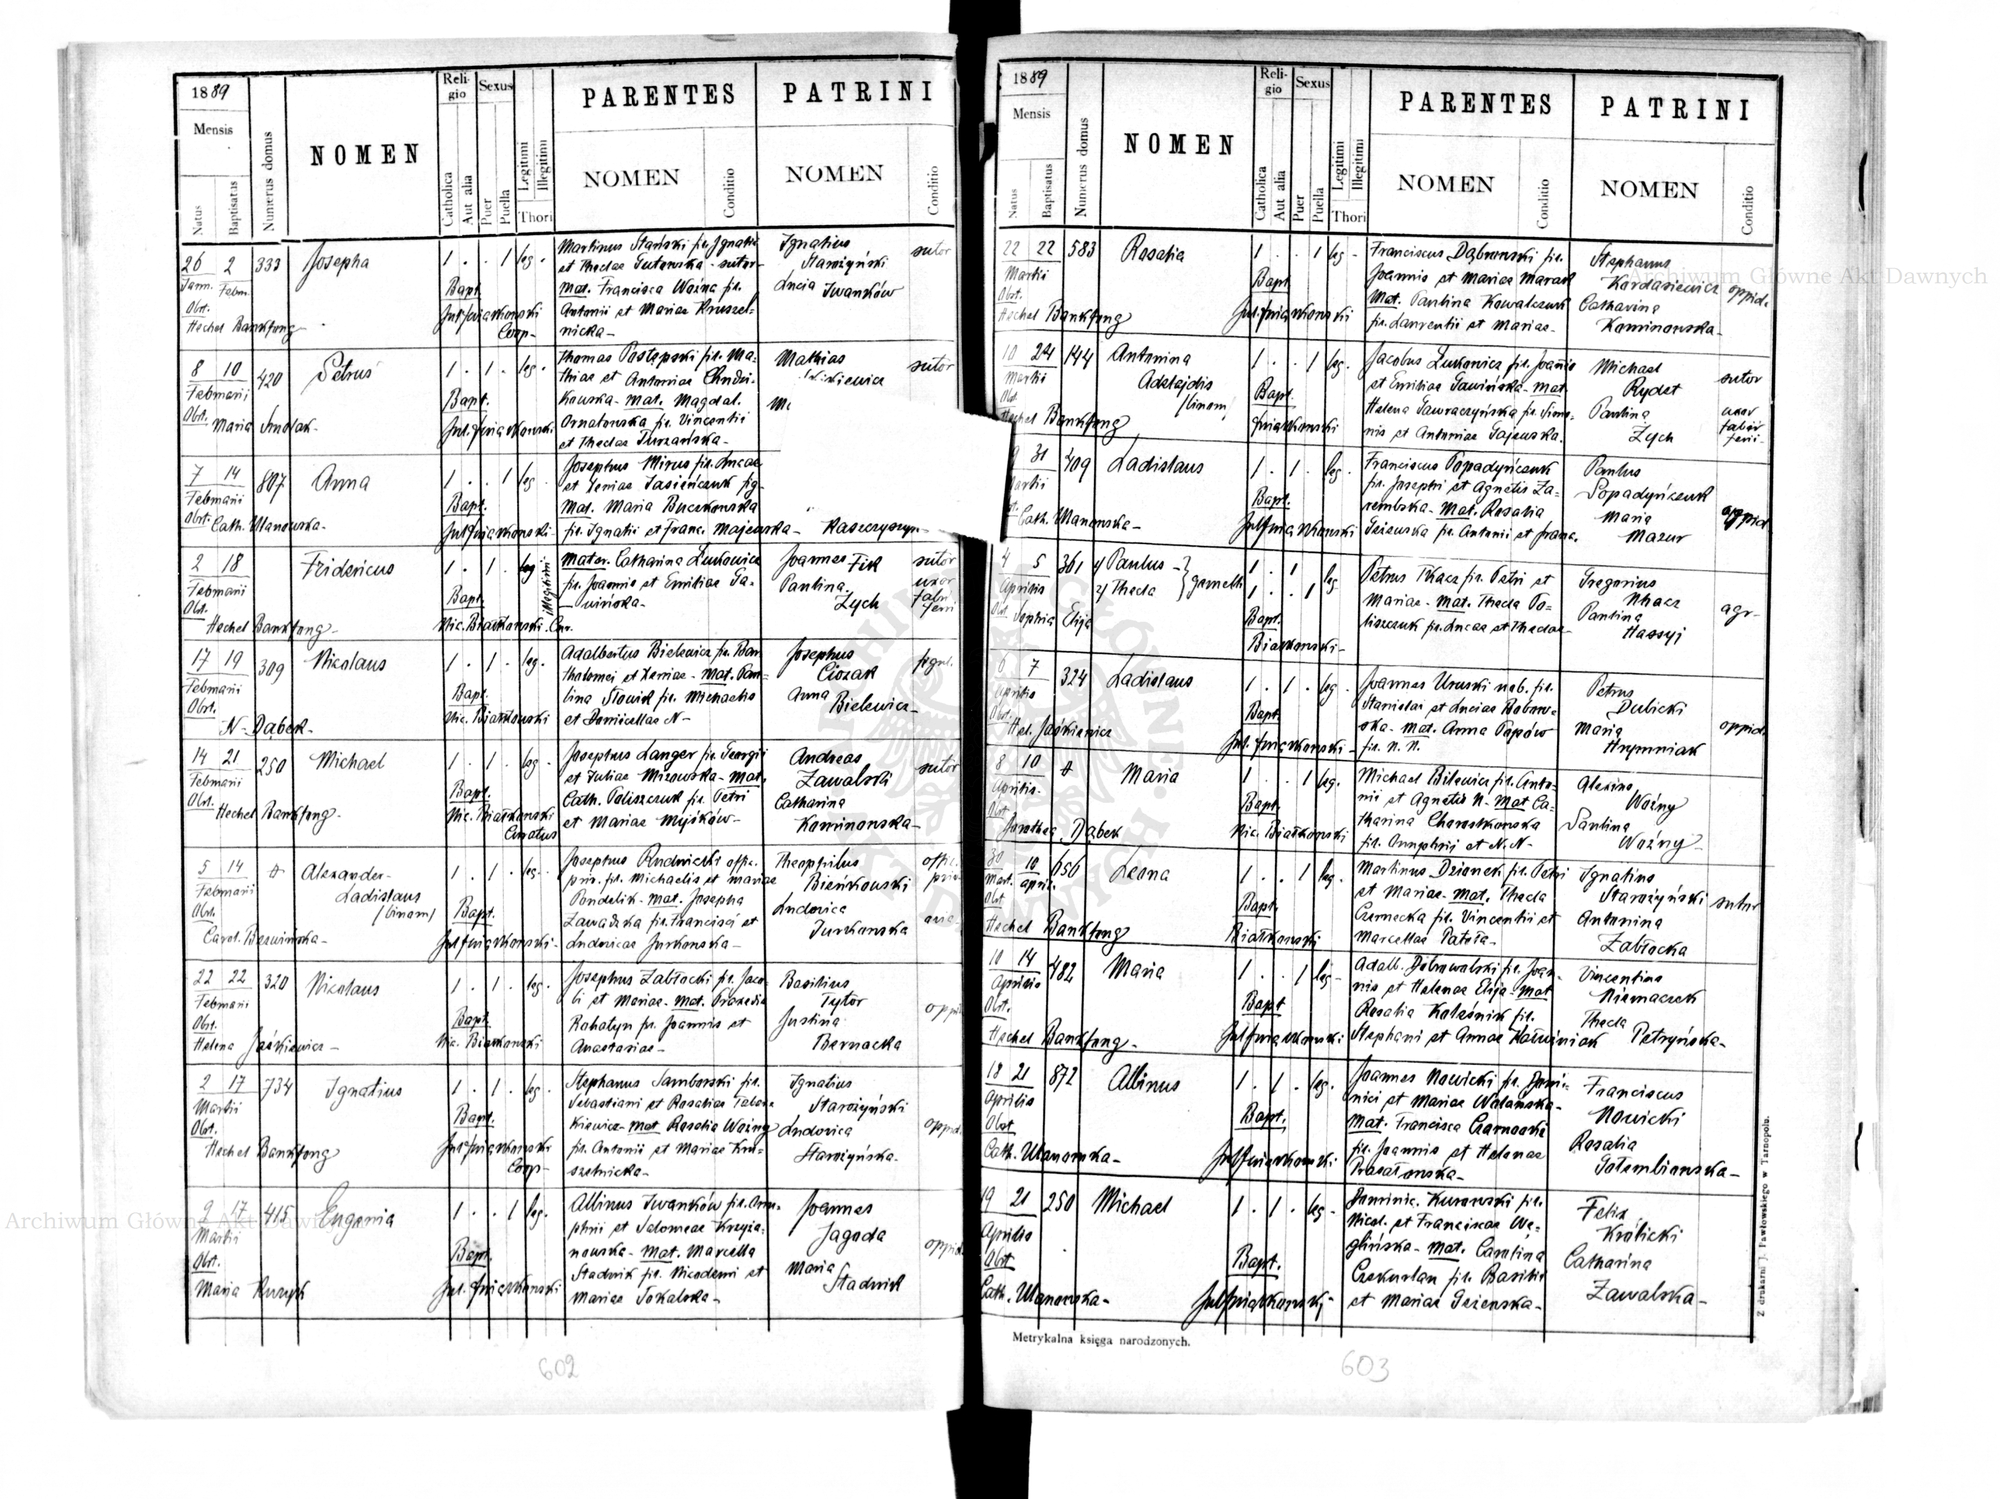 1889
Mensis
Natus
Baptisatus
Numerus domus
NOMEN
Religio
Catholica
Aut alia
Sexus
Puer
Puella
Legitimi
Illegitimi
Thori
PARENTES
NOMEN
Conditio
PATRINI
NOMEN
Conditio
26 2 333 Josepha 1 . . 1 leg.
Febru.
Obst.
Hechel Bankfong
Bapt.
Coop-
Martinus Stański fil. Ignatii
et Theclae Gutowska - sutor-
mat. Francisca Woźna fil.
Antonii et Mariae Kruszel-
nicka-
Ignatius
Starożyński
Lucia Iwanków
sutor
8 10 420 Petrus 1 . 1 . leg.
Februarii
Obst. Maria Smolak-
Bapt.
Thomas Postępski fil. Ma-
thiae et Antoniae
kowska- mat. Magdal.
Ornatowska fil. Vincentii
et Theclae
Mathias
sutor
7 14 807 Anna 1 . . 1 leg.
Februarii
Obst. Cath. Ulanowska-
Bapt.
Josephus Mirus fil. Lucae
et Xeniae Jasieńczuk fig-
mat. Maria Buczkowska
fil. Ignatii et Franc. Majewska-
Kaszczyszyn-
2 18 Fridericus 1 . 1 . illegitimi
Februarii
Obst.
Hechel Bankfong-
Bapt.
Nic. Białkowski Cur.
mater. Catharina Łukowicz
fil. Joannis et Emiliae Ga-
wińska-
Joannes Fik
Paulina
Zych
sutor
uxor
fabri
ferri
17 19 309 Nicolaus 1 . 1 . leg.
Februarii
Obst.
N- Dąbek-
Bapt.
Nic. Białkowski
Adalbertus Bielewicz fil. Bar-
tholomei et Xeniae- mat. Pau-
lina Słowik fil. Michaelis
et Domicellae N-
Josephus
Ciozak
Anna
Bielewicz-
figul.
14 21 250 Michael 1 . 1 . leg.
Februarii
Obst. Hechel Bankfong-
Bapt.
Nic. Białkowski
Curatus
Josephus Langer fil. Georgii
et Juliae Mizowska- mat.
Cath. Poliszczuk fil. Petri
et Mariae Myśków-
Andreas
Zawalski
Catharina
Kominowska-
sutor
5 14 Alexander-
Ladislaus
/binom/
1 . 1 . leg.
Februarii
Obst.
Carol. Bezwińska-
Bapt.
Josephus Rudnicki offic.
priv. fil. Michaelis et Mariae
Pondelik- mat. Josepha
Zawadzka fil. Francisci et
Ludovicae Jurkowska-
Theophilus
Bieńkowski
Ludovica
Jurkowska
offic.
priv.
22 22 320 Nicolaus 1 . 1 . leg.
Februarii
Obst.
Helena Jaśkiewicz-
Bapt.
Nic. Białkowski
Josephus Zabłocki fil. Jaco-
bi et Mariae- mat. Praxedia
Rohatyn fil. Joannis et
Anastasiae-
Basilius
Tytor
Justina
Bernacka
oppid.
2 17 734 Ignatius 1 . 1 . leg.
Martii
Obst.
Hechel Bankfong
Bapt.
Coop-
Stephanus Samborski fil.
Sebastiani et Rosaliae
kiewicz- mat. Rosalia Woźny
fil. Antonii et Mariae Kru-
szelnicka-
Ignatius
Starożyński
Ludovica
Starożyńska-
oppid.
9 17 415 Eugenia 1 . . 1 leg.
Martii
Obst.
Maria
Bapt.
Albinus Iwanków fil. Onu-
phrii et Salomeae Krzyża-
nowska- mat. Marcella
Stadnik fil. Nicodemi et
Mariae Sokalska-
Joannes
Jagoda
Maria
Stadnik
oppid.
602
1889
Mensis
Natus
Baptisatus
Numerus domus
NOMEN
Religio
Catholica
Aut alia
Sexus
Puer
Puella
Legitimi
Illegitimi
Thori
PARENTES
NOMEN
Conditio
PATRINI
NOMEN
Conditio
22 22 583 Rosalia 1 . . 1 leg-
Martii
Obst.
Hechel Bankfong
Bapt.
Franciscus Dąbrowski fil.
Joannis et Mariae Marak
Mat. Paulina Kowalczuk
fil. Laurentii et Mariae-
Stephanus
Kordasiewicz
Catharina
Kominowska-
oppid.
10 24 144 Antonina
Adelajdis
/binom/
1 . . 1 leg.
Martii
Obst.
Hechel Bankfong
Bapt.
Jacobus Łukowicz fil. Joannis
et Emiliae Gawińska- mat.
Helena Gawraczyńska fil. Simo-
nis et Antoniae Gajewska.
Michael
Rydet
Paulina
Zych
sutor
uxor
fabri
ferri-
31 409 Ladislaus 1 . 1 . leg.
Cath. Ulanowska-
Bapt.
Franciscus Popadyńczuk
fil. Josephi et Agnetis Za-
rembska- Mat. Rosalia
fil. Antonii et Franc.
Paulus
Popadyńczuk
Maria
Mazur
oppid.
4 5 361 1/ Paulus - 2/ Thecla } gemelli
1 . 1 leg
1 . . 1
Aprilis
Obst. Sophia Elija
Bapt.
Białkowski-
Petrus Tkacz fil. Petri et
Mariae- mat. Thecla Po-
liszczuk fil. Lucae et Theclae-
Gregorius
Tkacz
Paulina
Hassyj
agr-
6 7 324 Ladislaus 1 . 1 . leg.
Aprilis
Obst.
Hel. Jaśkiewicz
Bapt.
Joannes Uruski nob. fil.
Stanislai et Luciae Bobow-
ska- mat. Anna Popów
fil. N. N.
Petrus
Dubicki
Maria
Hrymniak
oppid.
8 10 Maria 1 . . 1 leg.
Aprilis.
Obst
Dorothea Dąbek
Bapt.
Nic. Białkowski
Michael Bilewicz fil. Anto-
nii et Agnetis N- Mat Ca-
tharina Chorostkowska
fil. Onuphrii et N. N-
Alexius
Woźny
Paulina
Woźny-
30 10 656 Leona 1 . . 1 leg.
Mart. April.
Obst
Hechel Bankfong
Bapt.
Białkowski
Martinus Dzionek fil. Petri
et Mariae- mat. Thecla
Czarnecka fil. Vincentii et
Marcellae Patoła-
Ignatius
Starożyński
Antonina
Zabłocka
sutor
10 14 482 Maria 1 . . 1 leg-
Aprilis
Obst.
Hechel Bankfong-
Bapt
Adalb. Dobrowolski fil. Joan-
nis et Helenae Elija- Mat
Rosalia Kolaśnik fil.
Stephani et Annae Kaźwiniak
Vincentius
Niemaczek
Thecla
Petryńska-
18 21 872 Albinus 1 . 1 . leg.
Aprilis
Obst
Cath. Ulanowska-
Bapt.
Joannes Nowicki fil. Domi-
nici et Mariae Wolańska-
Mat. Francisca Czarnecka
fil. Joannis et Helenae
Franciscus
Nowicki
Rosalia
Gołembiowska-
19 21 250 Michael 1 . 1 . leg-
Aprilis
Obst
Cath. Ulanowska-
Bapt.
Dominic. Kurowski fil.
Nicol. et Franciscae Wę-
glińska- mat. Carolina
Czekurlan fil. Basilii
et Mariae
Felix
Królicki
Catharina
Zawalska-
Metrykalna księga narodzonych.
Z drukarni J. Pawłowskiego w Tarnopolu.
603
Archiwum Główne Akt Dawnych
Archiwum Główne Akt Dawnych